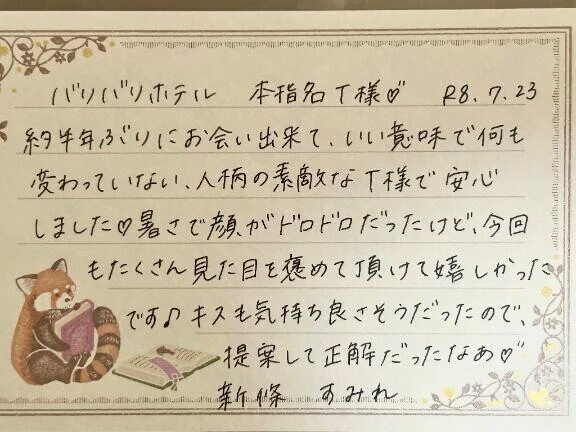 バリバリホテル 本指名T様♡ R8.7.23
約半年ぶりにお会い出来て、いい意味で何も
変わっていない、人柄の素敵なT様で安心
しました♡暑さで顔がドロドロだったけど、今回
もたくさん見た目を褒めて頂けて嬉しかった
です♪キスも気持ち良さそうだったので、
提案して正解だったなあ♡
新條 すみれ